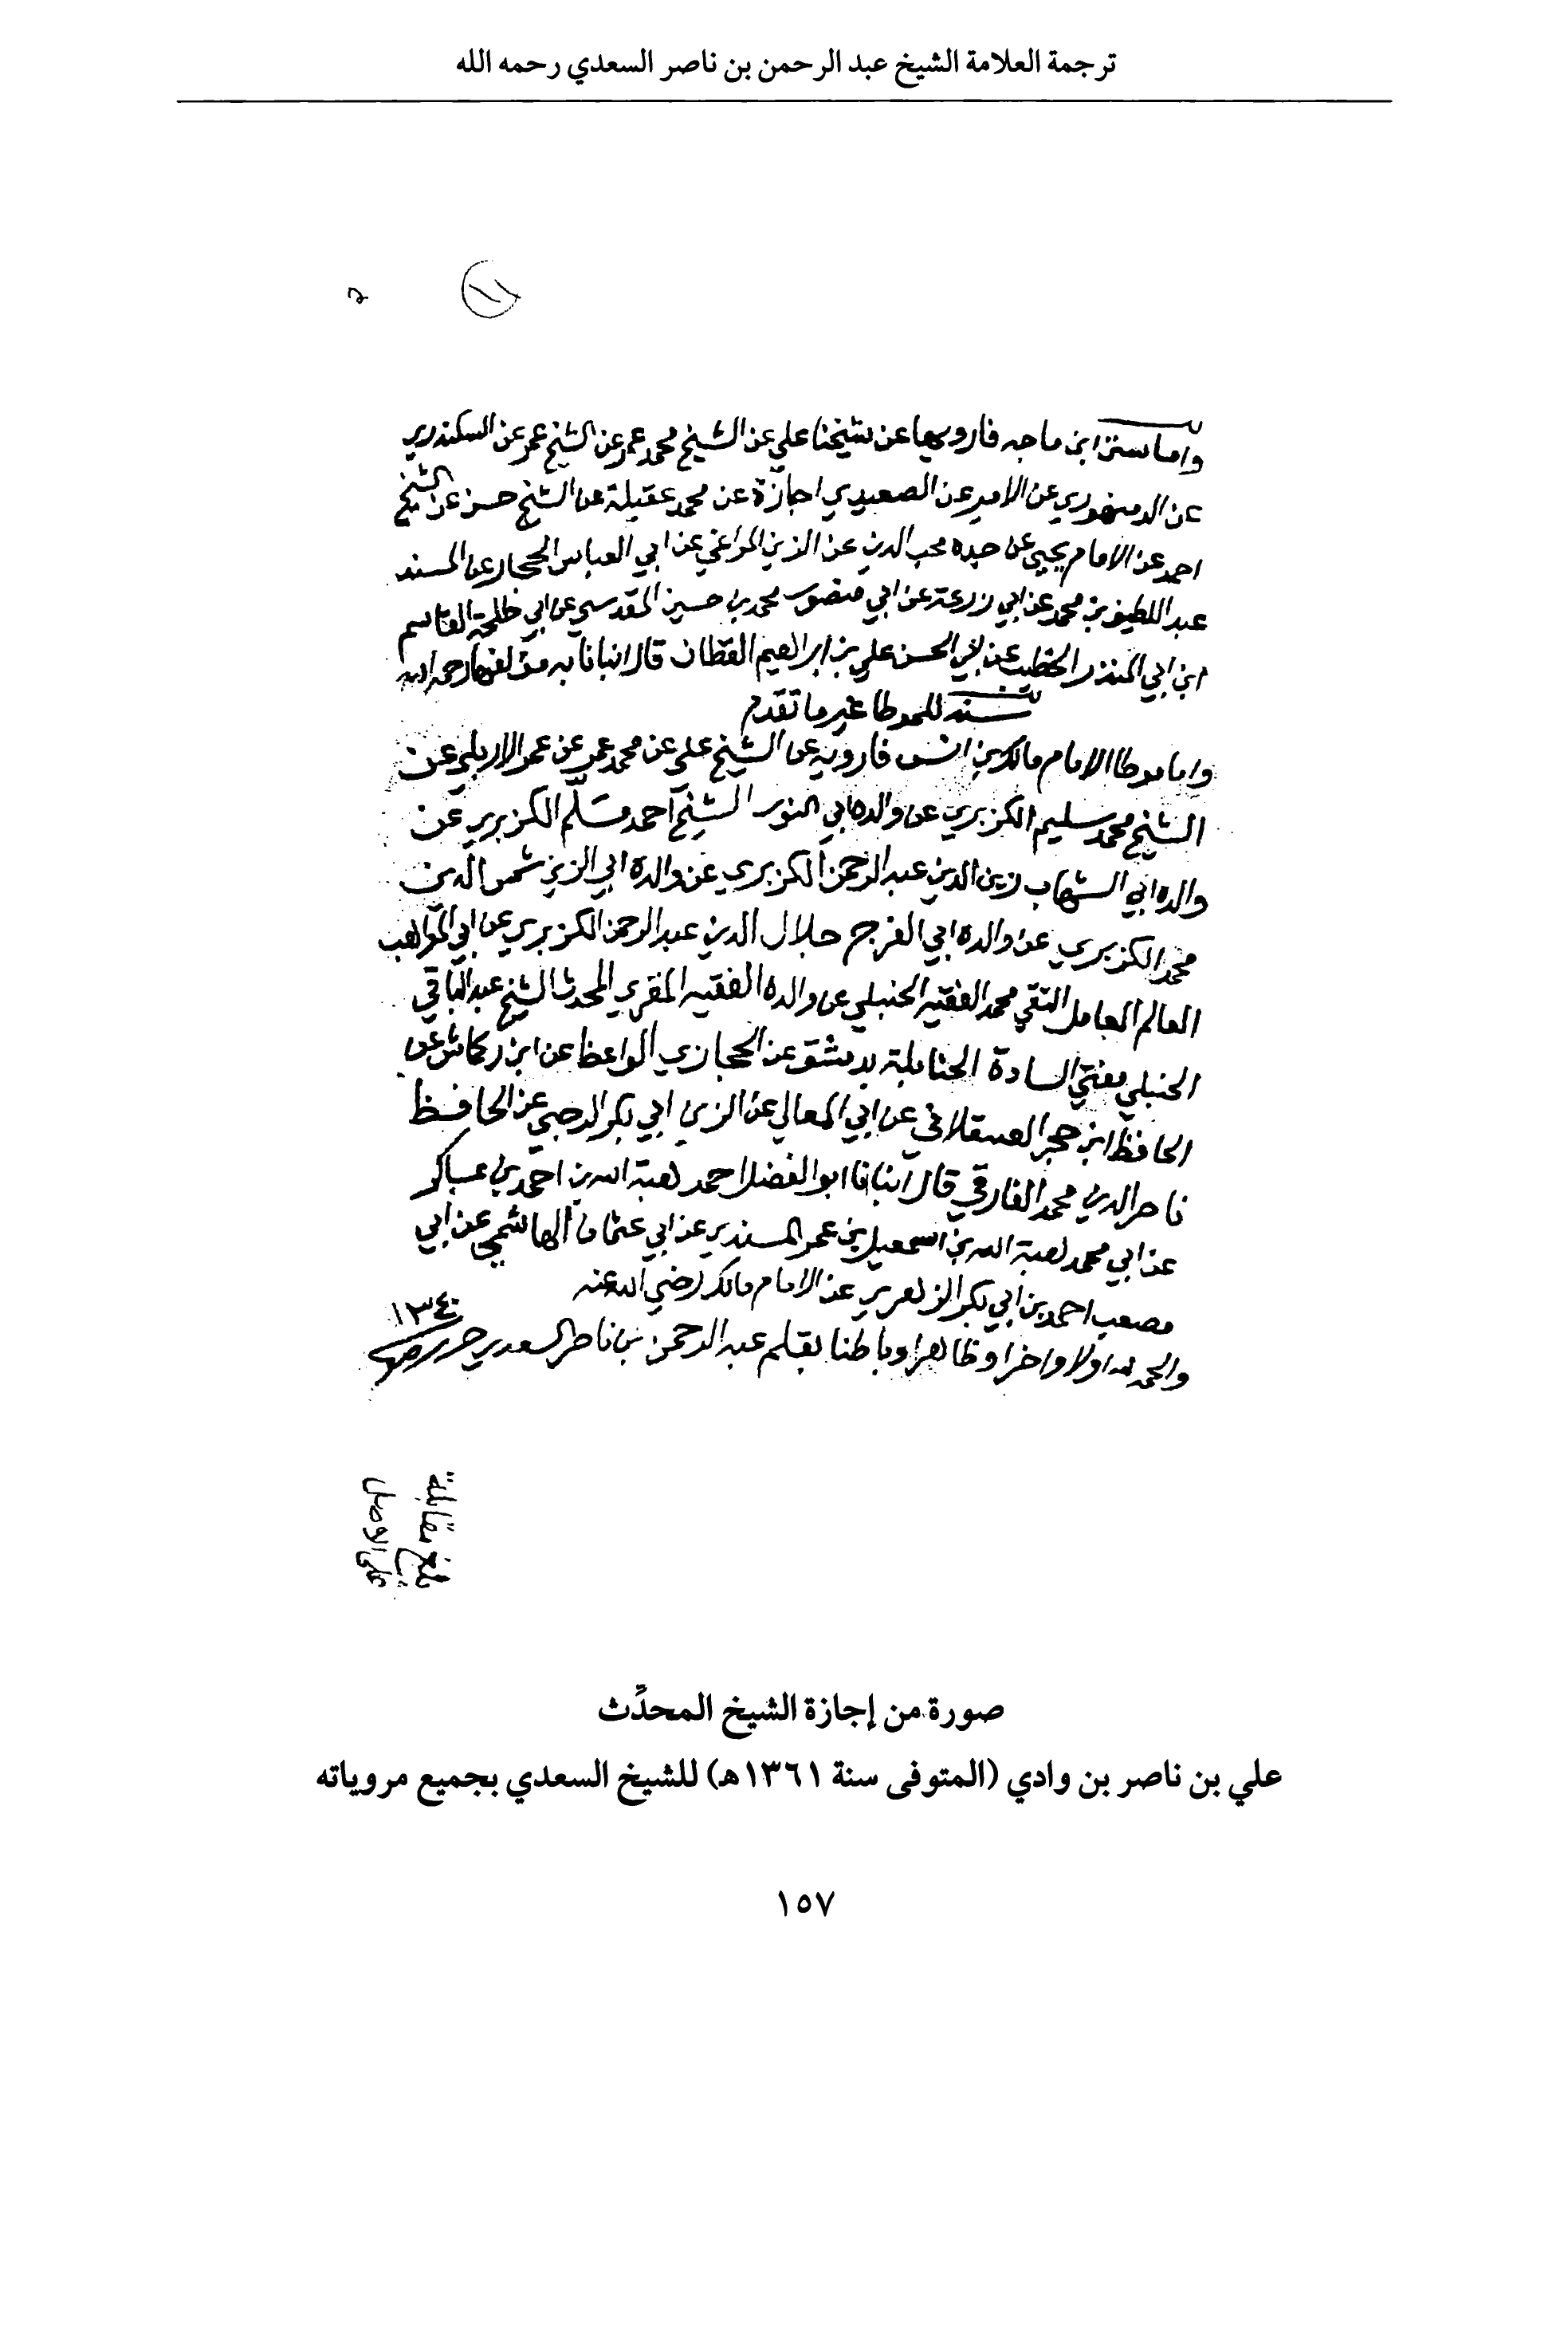 ترجمة العلامة الشيخ عبد الرحمن بن ناصر السعدي رحمه الله
واما سنن ابن ماجه فارويها عن شيخنا علي عن الشيخ محمد عمر عن الشيخ عمر عن السكندري
عن الدمنهوري عن الامير عن الصعيدي اجازة عن محمد عقيلة عن الشيخ حسن عن الشيخ
احمد عن الامام يحيى عن جده محب الدين عن الزين المراغي عن ابي العباس الحجار عن المسند
عبد اللطيف بن محمد عن ابي زرعة عن ابي منصور محمد بن حسين المقدسي عن ابي طلحة القاسم
ابن ابي المنذر الخطيب عن ابي الحسن علي بن ابراهيم القطان قال انبانا به مؤلفها رحمه الله
سند للموطا غير ما تقدم
واما موطا الامام مالك بن انس فارويه عن الشيخ علي عن محمد عمر عن عمر الاربلي عن
الشيخ محمد سليم الكزبري عن والده ابي النور الشيخ احمد مسلّم الكزبري عن
والده ابي الشهاب زين الدين عبد الرحمن الكزبري عن والده ابي الزين شمس الدين
محمد الكزبري عن والده ابي الفرج جلال الدين عبد الرحمن الكزبري عن ابي المواهب
العالم العامل التقي محمد الفقيه الحنبلي عن والده الفقيه المقري المحدث الشيخ عبد الباقي
الحنبلي مفتي السادة الحنابلة بدمشق عن الحجازي الواعظ عن ابن ركماش عن
الحافظ ابن حجر العسقلاني عن ابي المعالي عن الزين ابي بكر الرحبي عن الحافظ
ناصر الدين محمد الفارقي قال انبانا ابو الفضل احمد هبة الله بن احمد بن عساكر
عن ابي محمد هبة الله بن اسمعيل بن عمر المسندي عن ابي عثمان الهاشمي عن ابي
مصعب احمد بن ابي بكر الزهري عن الامام مالك رضي الله عنه
والحمد لله اولا واخرا وظاهرا وباطنا بقلم عبد الرحمن بن ناصر السعدي حرر ١٣٤٠
بلغ مقابلة
على الاصل
صورة من إجازة الشيخ المحدِّث
علي بن ناصر بن وادي (المتوفى سنة ١٣٦١هـ) للشيخ السعدي بجميع مروياته
١٥٧